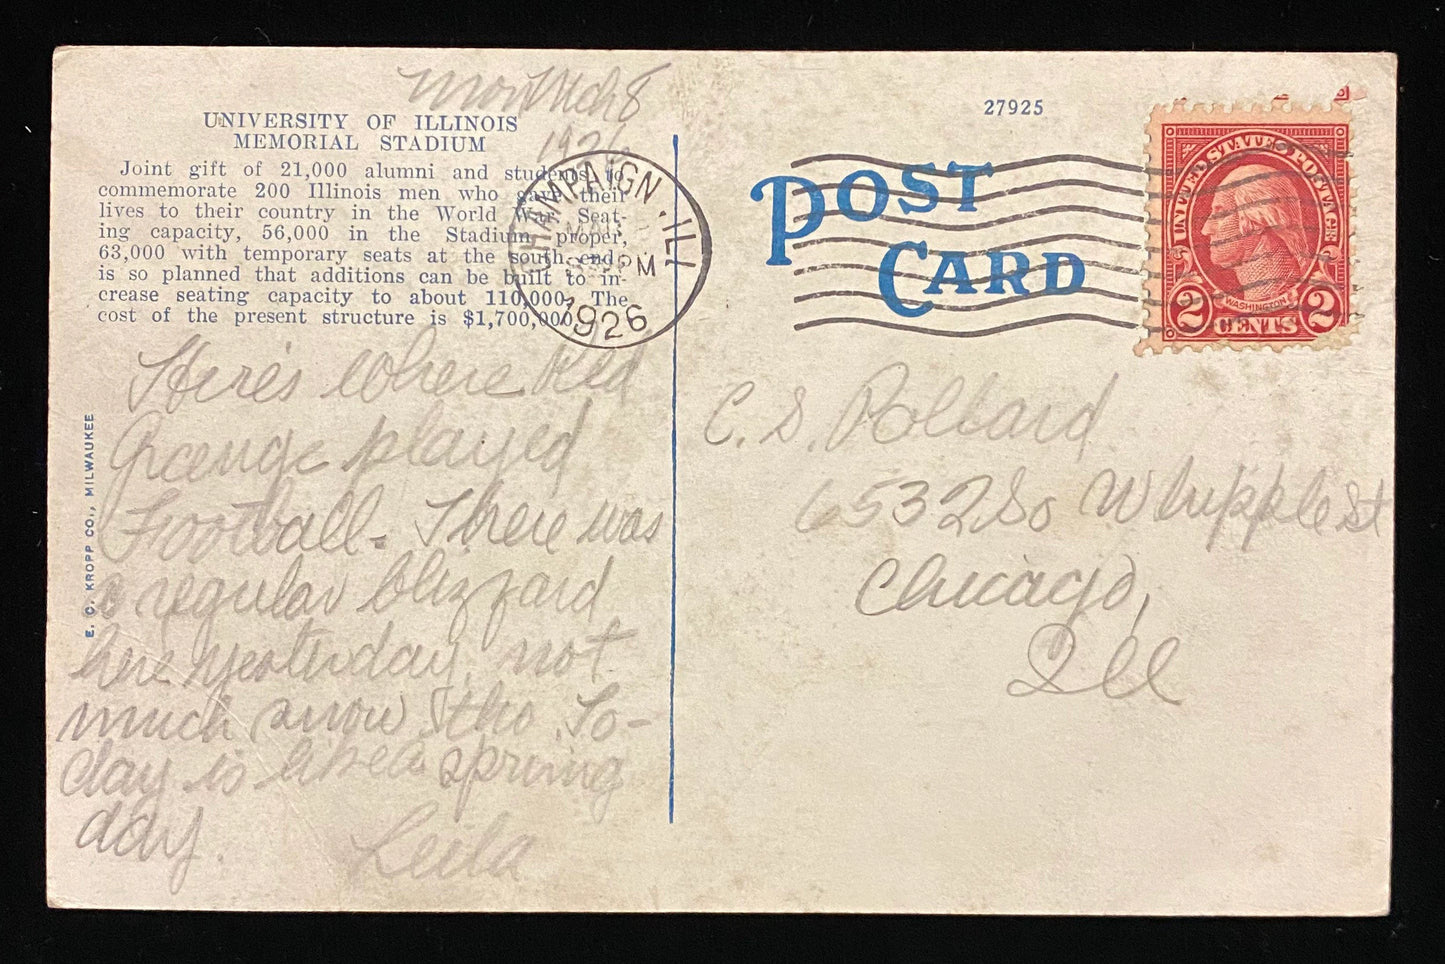 Mon Mch 8
1926
UNIVERSITY OF ILLINOIS
MEMORIAL STADIUM
Joint gift of 21,000 alumni and students to
commemorate 200 Illinois men who gave their
lives to their country in the World War. Seat-
ing capacity, 56,000 in the Stadium proper,
63,000 with temporary seats at the south end;
is so planned that additions can be built to in-
crease seating capacity to about 110,000. The
cost of the present structure is $1,700,000.
Here's where Red
Grange played
Football. There was
a regular blizzard
here yesterday, not
much snow tho. To-
day is like a spring
day.
Leila
E. C. KROPP CO., MILWAUKEE
CHAMPAIGN, ILL
MAR
PM
1926
27925
POST
CARD
UNITED STATES POSTAGE
WASHINGTON
2 CENTS 2
C. S. Pollard
6532 So Whipple St
Chicago,
Ill